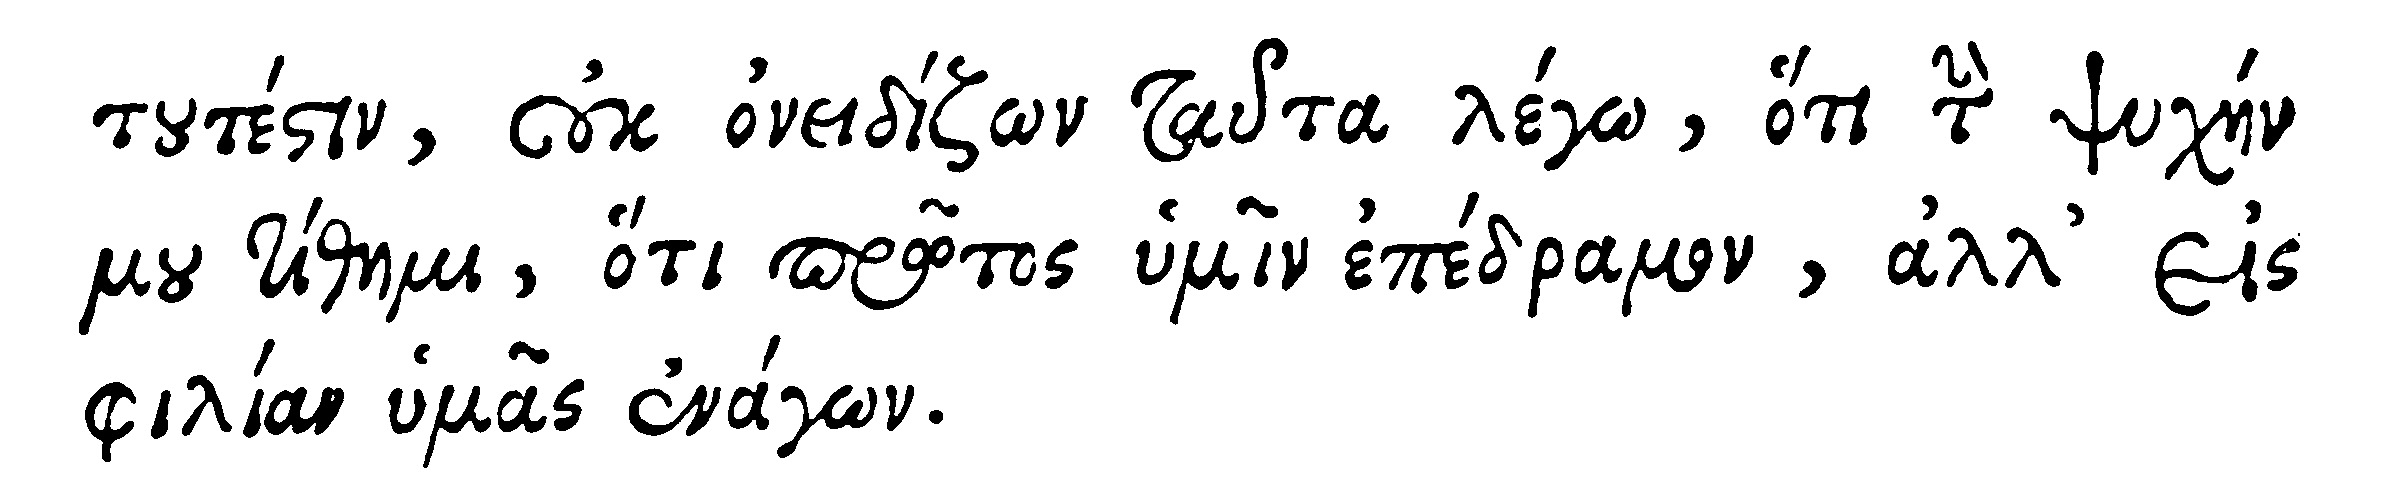 τουτέστιν, οὐκ ὀνειδίζων ταῦτα λέγω, ὅτι τὴν ψυχήν
μου τίθημι, ὅτι πρῶτος ὑμῖν ἐπέδραμον, ἀλλ’ εἰς
φιλίαν ὑμᾶς ἐνάγων.